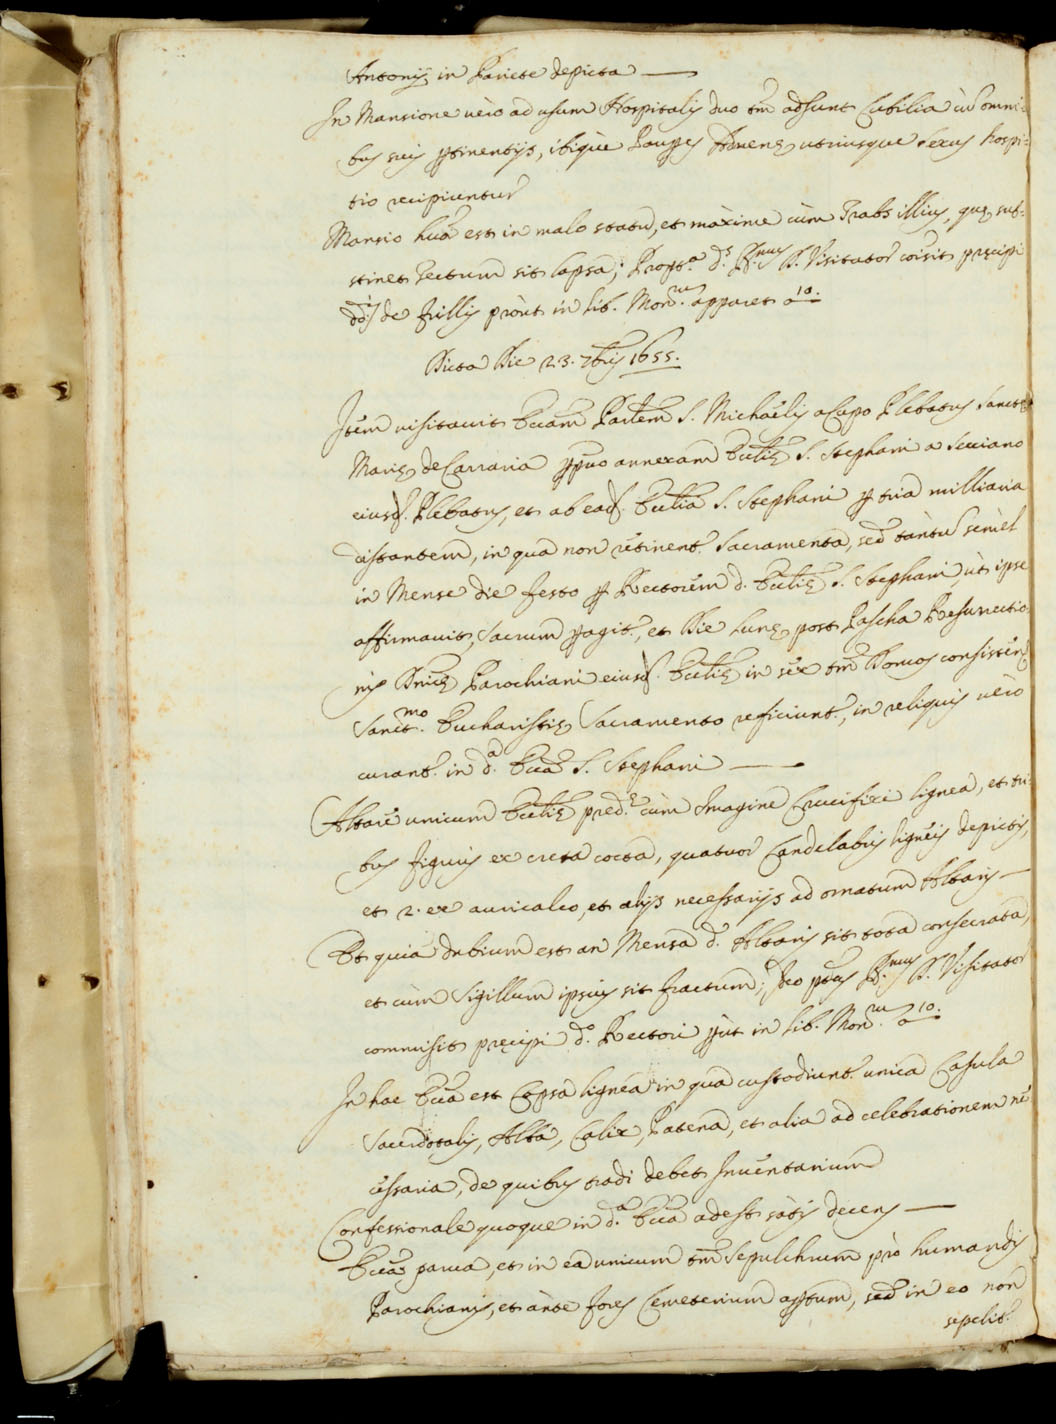 Antonij in Pariete depicta
In Mansione vero ad usum Hospitalis duo tm̃ adsunt Cubilia cū omni-
bus suis ptinentijs, ibique Paupes Advenę utriusque sexus hospi-
tio recipiuntur
Mansio hęc est in malo statu, et maxime cum Trabs illius, quę sus-
tinet Tectum sit lapsa; d.s Visitator præcipi
de Frillis prout in lib. Mon.rū apparet a 10.
Dicta Die 23. 7bris 1655.
Item visitavit Eccam S. Michaelis a Capo Plebatus Sanctę
Marię de Carraria annexam Ecclię S. Stephani a Secciano
eiusd. Plebatus, et ab ead. Ecclia S. Stephani p tria milliaria
distantem, in qua non retinent. Sacramenta, sed tantū semel
in Mense die festo p Rectorem d. Ecclię S. Stephani, ut ipse
affirmavit, Sacrum pagit., et Die Lunę post Pascha Resurrectio-
nis Dnicę Parochiani eiusd. Ecclię in sex tm̃ Domos consistẽn
Sanct.mo Eucharistię Sacramento reficiunt., in reliquis vero
curant. in d.a Ecca S. Stephani
Altare unicum Ecclię pred.ę cum Imagine Crucifixi lignea, et tri-
bus figuris ex creta cocta, quatuor Candelabris ligneis depictis,
et 2. ex auricalco, et alijs necessarijs ad ornatum Altaris
Et quia dubium est an Mensa d. Altaris sit tota consecrata,
et cum Sigillum ipsius sit fractum; Ideo Visitator
commisit pręcipi d.o Rectori put in lib. Mon.rū a 10.
In hac Ecca est Capsa lignea in qua custodiunt. unica Casula
Sacerdotalis, Alba, Calix, Patena, et alia ad celebrationem ne-
cessaria, de quibus tradi debet Inventarium
Confessionale quoque in d.a Ecca adest satis decens
Ecca parva, et in ea unicum tm̃ Sepulchrum pro humandis
Parochianis, et ante fores Cemeterium aptum, sed in eo non
sepelit.